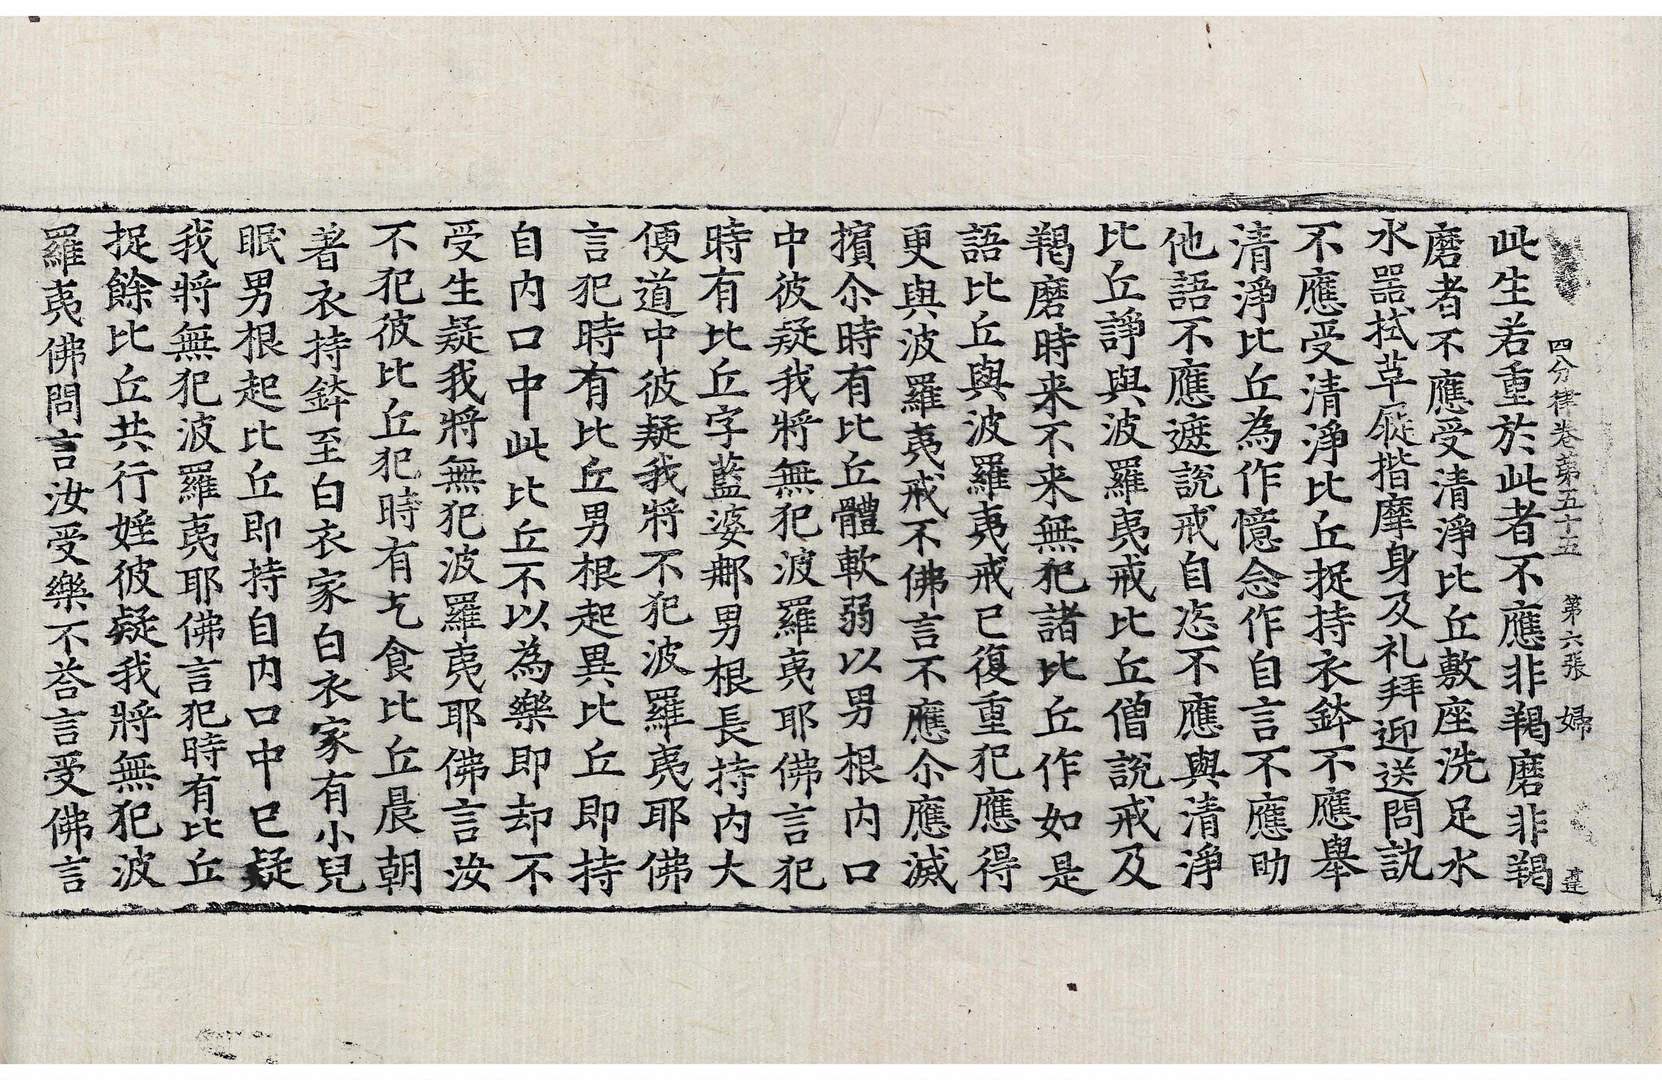 四分律卷第五十五　第六張　婦
此生若重於此者不應非羯磨非羯
磨者不應受清淨比丘敷座洗足水
水器拭草屣揩摩身及礼拜迎送問訊
不應受清淨比丘捉持衣鉢不應舉
清淨比丘為作憶念作自言不應助
他語不應遮說戒自恣不應與清淨
比丘諍與波羅夷戒比丘僧說戒及
羯磨時来不来無犯諸比丘作如是
語比丘與波羅夷戒已復重犯應得
更與波羅夷戒不佛言不應尒應滅
擯尒時有比丘體軟弱以男根内口
中彼疑我將無犯波羅夷耶佛言犯
時有比丘字藍婆那男根長持内大
便道中彼疑我將不犯波羅夷耶佛
言犯時有比丘男根起異比丘即持
自内口中此比丘不以為樂即却不
受生疑我將無犯波羅夷耶佛言汝
不犯彼比丘犯時有乞食比丘晨朝
著衣持鉢至白衣家白衣家有小兒
眠男根起比丘即持自内口中已疑
我將無犯波羅夷耶佛言犯時有比丘
捉餘比丘共行婬彼疑我將無犯波
羅夷佛問言汝受樂不荅言受佛言